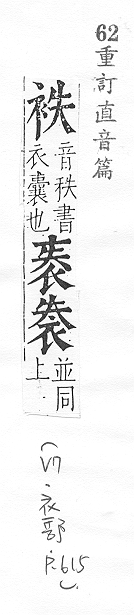 62重訂直音篇
袟音秩書衣囊也袠袃並同上
(V7、衣部 P.615)